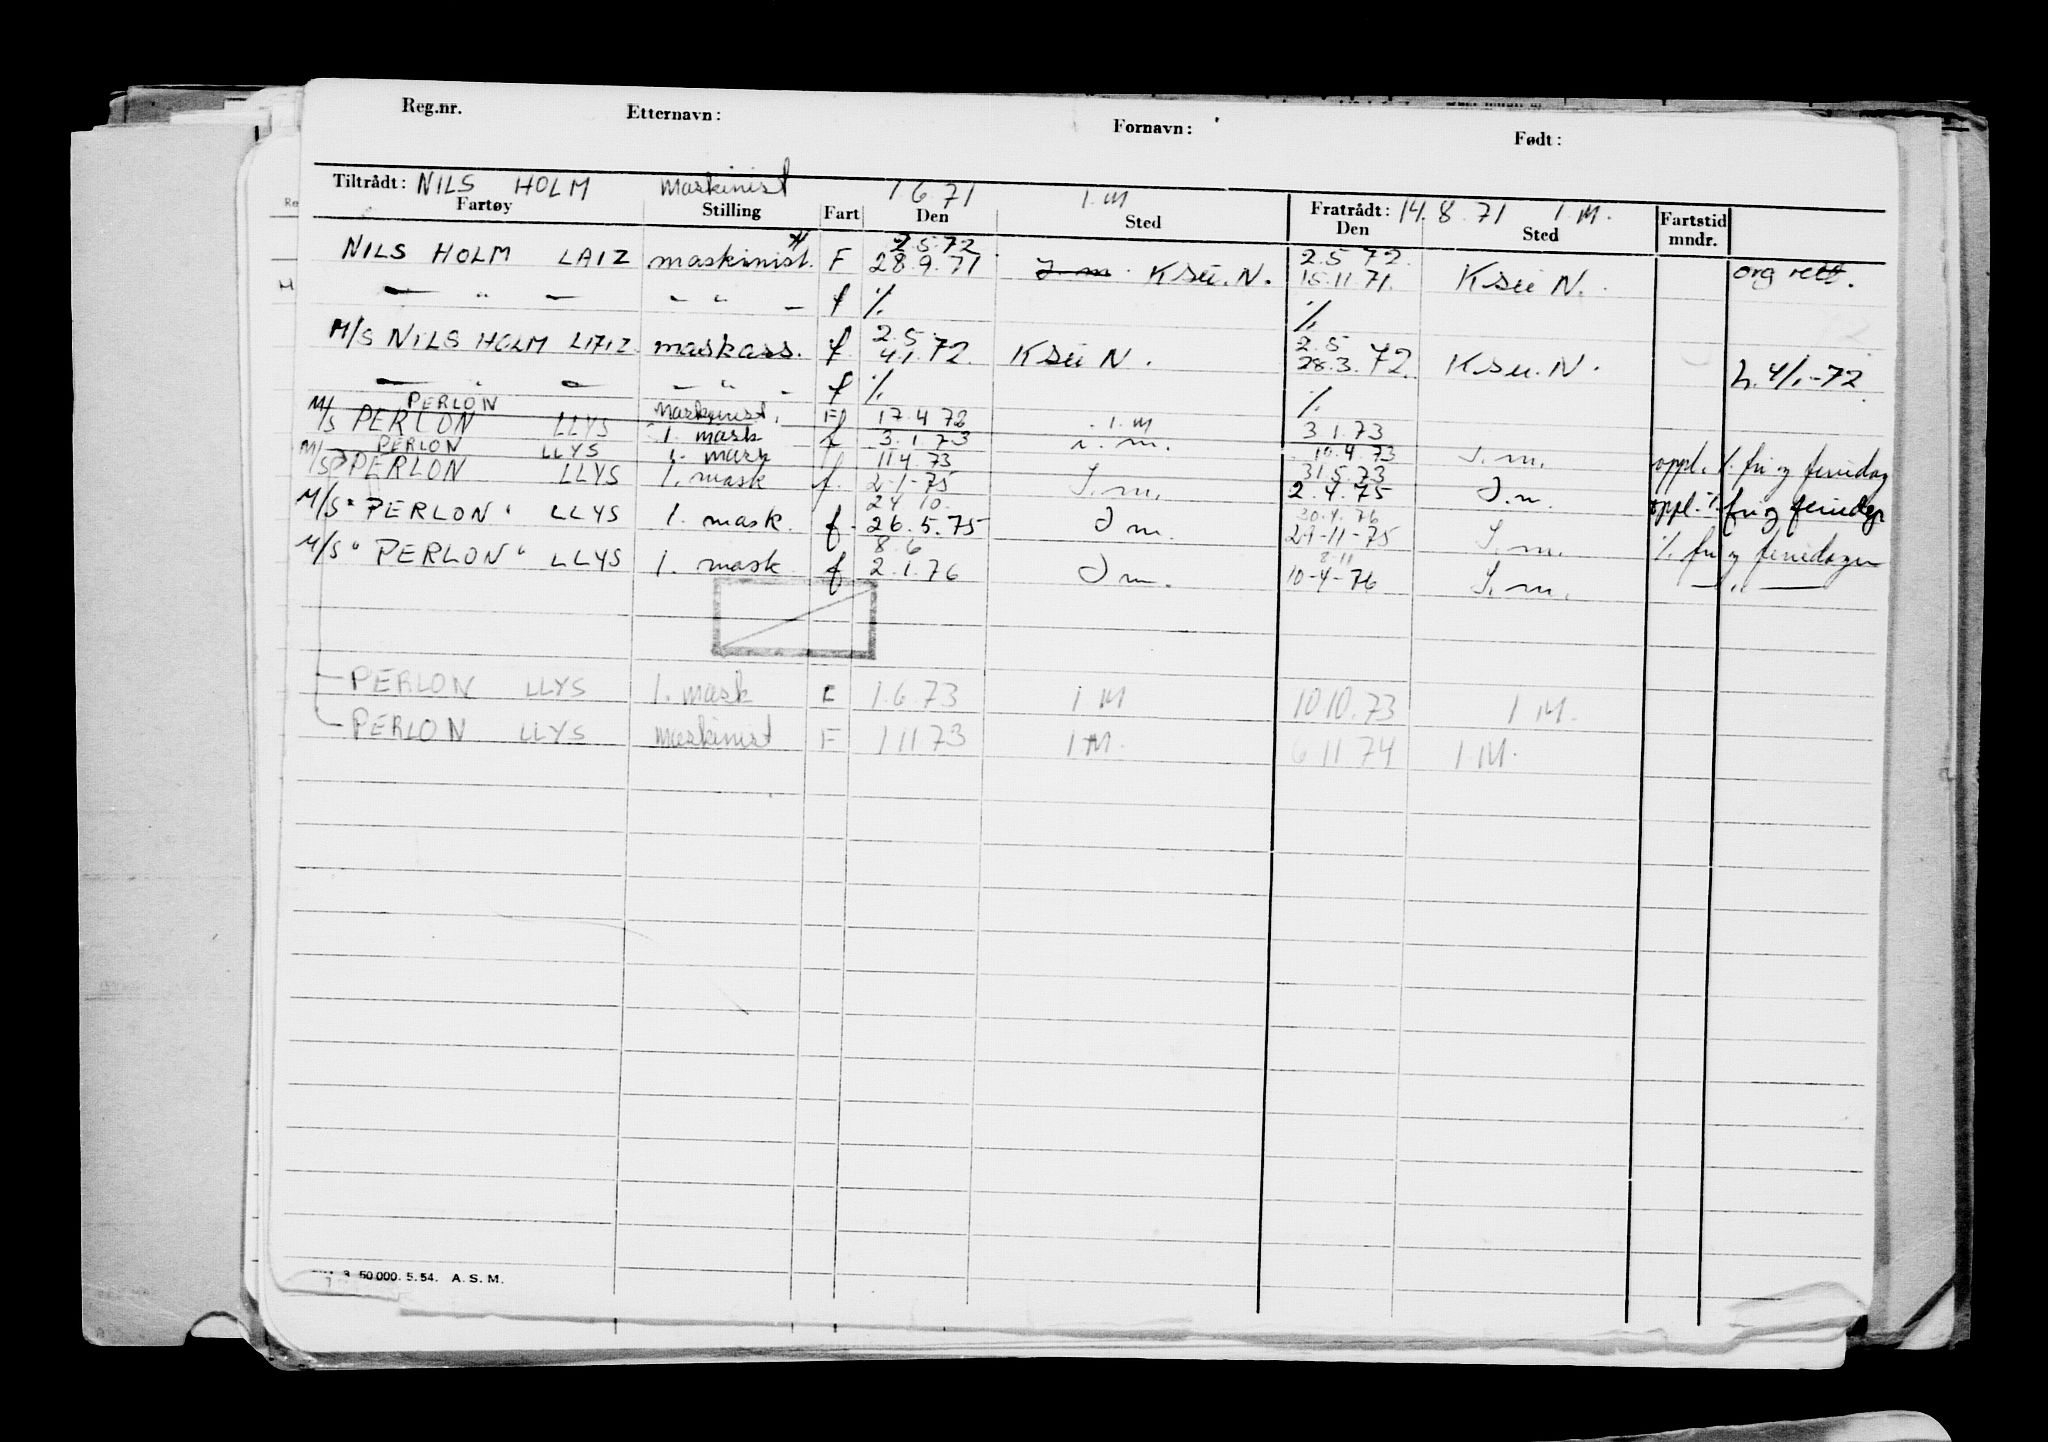 Reg.nr. Etternavn: Fornavn: Født:
Tiltrådt: NILS HOLM Maskinist 1.6.71 I.M Fratrådt: 14.8.71 I.M.
Fartøy Stilling Fart Den Sted Den Sted Fartstid mndr.
2.5.72 2.5.72
NILS HOLM LAIZ maskinist. F 28.9.71 J.m. K SU. N. 15.11.71. K SU N. org rett.
— " — — " — f %. %.
2.5 2.5
M/S NILS HOLM LAIZ. maskass. f 4.1.72. K SU N. 28.3.72. K SU. N. h. 4/1-72
— " — — " — f %. %.
PERLON Maskinist. F 17.4.72 I.M 3.1.73
M/S PERLON LLYS 1. mask f 3.1.73 i.m. 10.4.73 J.m. oppl. %. fri og feriedag
PERLON LLYS 1. mask 11.4.73 31.5.73
M/S PERLON LLYS 1. mask f. 2-1-75 J.m. 2.4.75 J.m. oppl. %. fri og feriedgr
24 10. 30.4.76
M/S "PERLON" LLYS 1. mask. f. 26.5.75 J m. 29-11-75 J.m. %. fri og feriedager
8.6 8.11
M/S "PERLON" LLYS 1. mask f 2.1.76 J m. 10-4-76 J.m. — " —
PERLON LLYS 1. mask F 1.6.73 I M 10 10.73 I M.
PERLON LLYS Maskinist F 1 11 73 I M. 6 11 74 I M.
50 000. 5. 54. A. S. M.